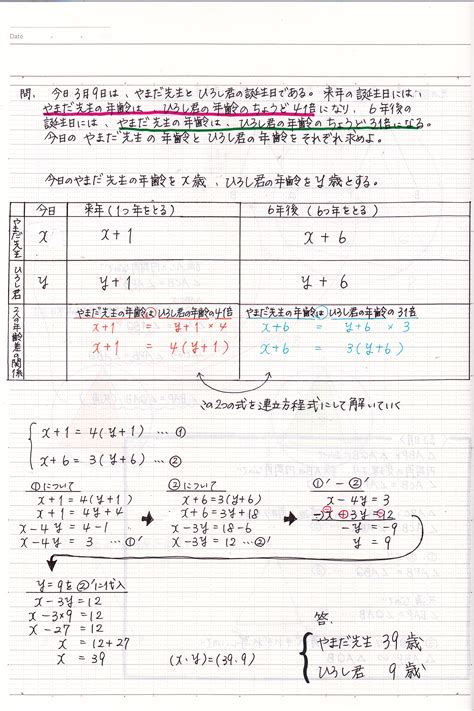 Date
問. 今日3月9日は、やまだ先生とひろし君の誕生日である。来年の誕生日には、
やまだ先生の年齢は、ひろし君の年齢のちょうど4倍になり、6年後の
誕生日には、やまだ先生の年齢は、ひろし君の年齢のちょうど3倍になる。
今日のやまだ先生とひろし君の年齢をそれぞれ求めよ。
今日のやまだ先生の年齢をx歳、ひろし君の年齢をy歳とする。
今日 来年(1つ年をとる) 6年後(6つ年をとる)
やまだ先生 x x+1 x+6
ひろし君 y y+1 y+6
2人の年齢差の関係 やまだ先生の年齢は ひろし君の年齢の4倍 やまだ先生の年齢は ひろし君の年齢の3倍
x+1 = y+1 × 4 x+6 = y+6 × 3
x+1 = 4(y+1) x+6 = 3(y+6)
この2つの式を連立方程式にして解いていく
x+1 = 4(y+1) … ①
x+6 = 3(y+6) … ②
①について ②について ①′-②
x+1=4(y+1) x+6=3(y+6) x-4y=3
x+1=4y+4 x+6=3y+18 -x+3y=12
x-4y=4-1 x-3y=18-6 -y=-9
x-4y= 3 …①′ x-3y=12…②′ y=9
y=9を②′に代入
x-3y=12
x-3×9=12
x-27=12
x=12+27
x=39 (x,y)=(39,9)
答:
やまだ先生 39歳
ひろし君 9歳